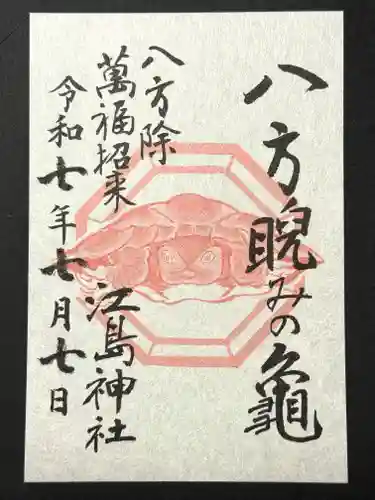 八方睨みの亀
八方除
萬福招来
江島神社
令和七年七月七日